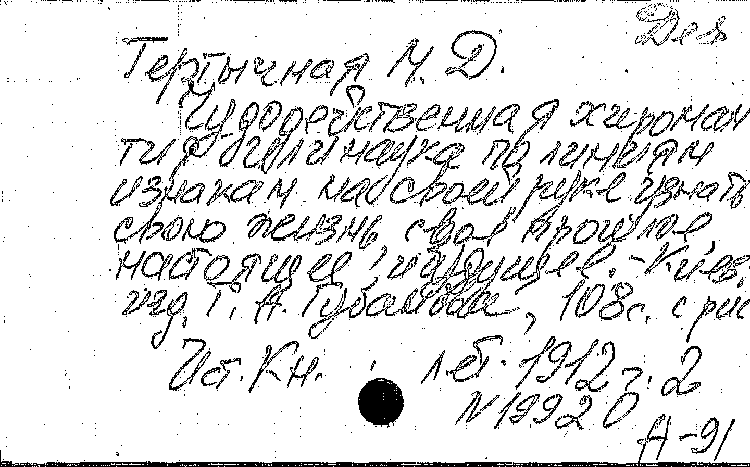 Дея
Тертычная М. Д.
Чудодейственная хироман
тия или наука по линиям
и знакам на своей руке узнать
свою жизнь, свое прошлое,
настоящее, и будущее. - Киев.
изд. Т. А. Губанова, 108 с. с рис
Ист. Кн. лет. 1912 г. 2
N 19920
А-91